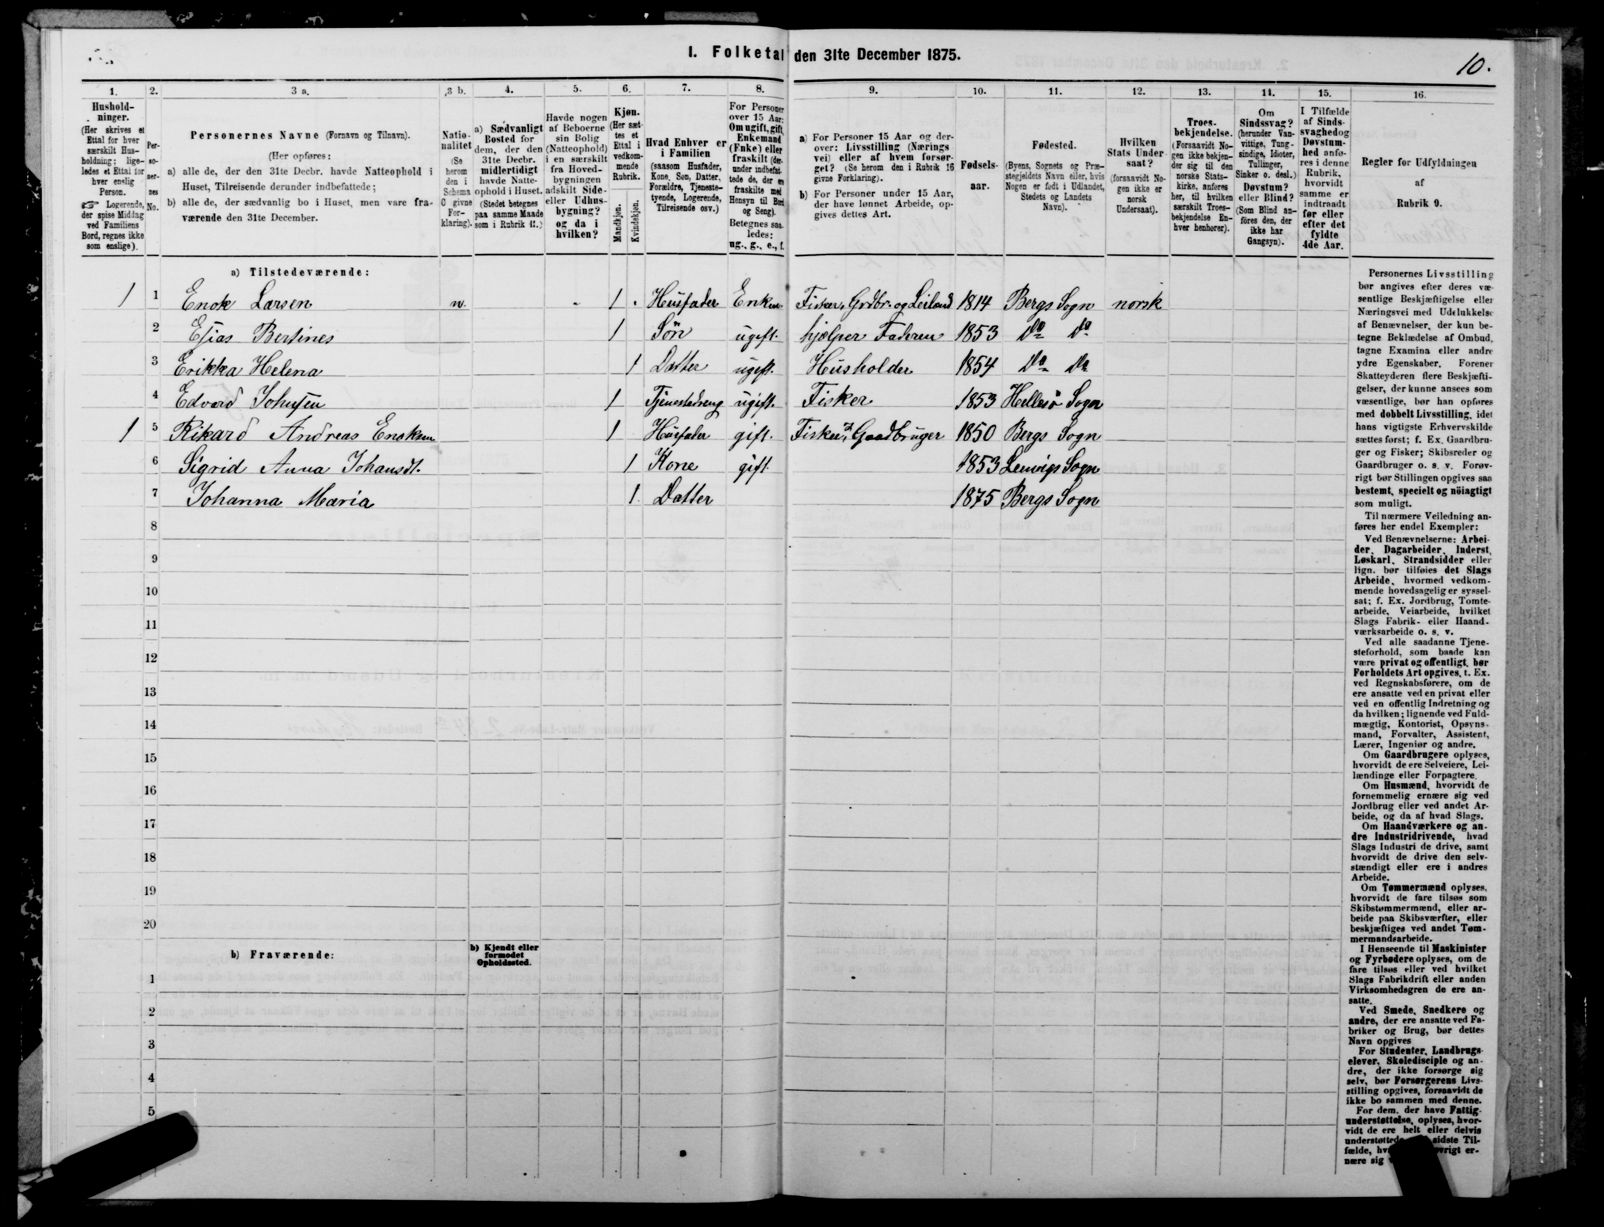 1. Folketal den 31te December 1875.
10.
1.
2.
3 a.
3 b.
4.
5.
6.
7.
8.
9.
10.
11.
12.
13.
14.
15.
16.
Hushold-
ninger.
(Her skrives et
Ettal for hver
særskilt Hus-
holdning; lige-
ledes et Ettal for
hver enslig
Person.
☞ Logerende,
der spise Middag
ved Familiens
Bord, regnes ikke
som enslige).
Per-
so-
ner-
nes
No.
Personernes Navne (Fornavn og Tilnavn).
(Her opføres:
a) alle de, der den 31te Decbr. havde Natteophold i
Huset, Tilreisende derunder indbefattede;
b) alle de, der sædvanlig bo i Huset, men vare fra-
værende den 31te December.
Natio-
nalitet
(Se
herom
den i
Schema
C givne
For-
klaring).
a) Sædvanligt
Bosted for
dem, der den
31te Decbr.
midlertidigt
havde Natte-
ophold i Huset.
(Stedet betegnes
paa samme Maade
som i Rubrik 11.)
Havde nogen
af Beboerne
sin Bolig
(Natteophold)
i en særskilt
fra Hoved-
bygningen
adskilt Side-
eller Udhus-
bygning?
og da i
hvilken?
Kjøn.
(Her sæt-
tes et
Ettal i
vedkom-
mende
Rubrik.
Mandkjøn.
Kvindekjøn.
Hvad Enhver er
i Familien
(saasom Husfader,
Kone, Søn, Datter,
Forældre, Tjeneste-
tyende, Logerende,
Tilreisende osv.)
For Personer
over 15 Aar:
Om ugift, gift,
Enkemand
(Enke) eller
fraskilt (der-
under indbefat-
tede de, der ere
fraskilte med
Hensyn til Bord
og Seng).
Betegnes saa-
ledes:
ug., g., e., f.
a) For Personer 15 Aar og der-
over: Livsstilling (Nærings-
vei) eller af hvem forsør-
get? (Se herom den i Rubrik 16
givne Forklaring).
b) For Personer under 15 Aar,
der have lønnet Arbeide, op-
gives dettes Art.
Fødsels-
aar.
Fødested.
(Byens, Sognets og Præ-
stegjeldets Navn eller, hvis
Nogen er født i Udlandet,
Stedets og Landets
Navn).
Hvilken
Stats Under-
saat?
(forsaavidt No-
gen ikke er
norsk
Undersaat).
Troes-
bekjendelse.
(Forsaavidt No-
gen ikke bekjen-
der sig til den
norske Stats-
kirke, anføres
her, til hvilken
særskilt Troes-
bekjendelse En-
hver henhører).
Om
Sindssvag?
(herunder Van-
vittige, Tung-
sindige, Idioter,
Tullinger,
Sinker o. desl.)
Døvstum?
eller Blind?
(Som Blind an-
føres den, der
ikke har
Gangsyn).
I Tilfælde
af Sinds-
svaghed og
Døvstum-
hed anfø-
res i denne
Rubrik,
hvorvidt
samme er
indtraadt
før eller
efter det
fyldte
4de Aar.
Regler for Udfyldningen
af
Rubrik 9.
a) Tilstedeværende:
1 1 Enok Larsen n. 1 Husfader Enkm Fisker, Grdbr. og Leilend 1814 Bergs Sogn norsk
2 Elias Bertines 1 Søn ugift. hjælper Faderen 1853 Do Do
3 Erikka Helena 1 Datter ugift. Husholder 1854 Do Do
4 Edvard Johnsen 1 Tjenestedreng ugift. Fisker 1853 Hellesø Sogn
1 5 Rikard Andreas Enoksen 1 Husfader gift. Fisker & Gaardbruger 1850 Bergs Sogn
6 Sigrid Anna Johansdt. 1 Kone gift 1853 Lenvigs Sogn
7 Johanna Maria 1 Datter 1875 Bergs Sogn
8
9
10
11
12
13
14
15
16
17
18
19
20
b) Fraværende:
b) Kjendt eller
formodet
Opholdssted.
1
2
3
4
5
Personernes Livsstilling
bør angives efter deres væ-
sentlige Beskjæftigelse eller
Næringsvei med Udelukkelse
af Benævnelser, der kun be-
tegne Beklædelse af Ombud,
tagne Examina eller andre
ydre Egenskaber. Forener
Skatteyderen flere Beskjæfti-
gelser, der kunne ansees som
væsentlige, bør han opføres
med dobbelt Livsstilling, idet
hans vigtigste Erhvervskilde
sættes først; f. Ex. Gaardbru-
ger og Fisker; Skibsreder og
Gaardbruger o. s. v. Forøv-
rigt bør Stillingen opgives saa
bestemt, specielt og nöiagtigt
som muligt.
Til nærmere Veiledning an-
føres her endel Exempler:
Ved Benævnelserne: Arbei-
der, Dagarbeider, Inderst,
Løskarl, Strandsidder eller
lign. bør tilføies det Slags
Arbeide, hvormed vedkom-
mende hovedsagelig er syssel-
sat; f. Ex. Jordbrug, Tomte-
arbeide, Veiarbeide, hvilket
Slags Fabrik- eller Haand-
værksarbeide o. s. v.
Ved alle saadanne Tjene-
steforhold, som baade kan
være privat og offentligt, bør
Forholdets Art opgives, t. Ex.
ved Regnskabsførere, om de
ere ansatte ved en privat eller
ved en offentlig Indretning og
da hvilken; lignende ved Fuld-
mægtig, Kontorist, Opsyns-
mand, Forvalter, Assistent,
Lærer, Ingeniør og andre.
Om Gaardbrugere oplyses,
hvorvidt de ere Selveiere, Lei-
lændinge eller Forpagtere.
Om Husmænd, hvorvidt de
fornemmelig ernære sig ved
Jordbrug eller ved andet Ar-
beide, og da af hvad Slags.
Om Haandværkere og an-
dre Industridrivende, hvad
Slags Industri de drive, samt
hvorvidt de drive den selv-
stændigt eller ere i andres
Arbeide.
Om Tømmermænd oplyses,
hvorvidt de fare tilsøs som
Skibstømmermænd, eller ar-
beide paa Skibsværfter, eller
beskjæftiges ved andet Tøm-
mermandsarbeide.
I Henseende til Maskinister
og Fyrbødere oplyses, om de
fare tilsøs eller ved hvilket
Slags Fabrikdrift eller anden
Virksomhedsgren de ere an-
satte.
Ved Smede, Snedkere og
andre, der ere ansatte ved Fa-
briker og Brug, bør dettes
Navn opgives
For Studenter, Landbrugs-
elever, Skoledisciple og an-
dre, der ikke forsørge sig
selv, bør Forsørgerens Livs-
stilling opgives, forsaavidt de
ikke bo sammen med denne.
For dem, der have Fattig-
understøttelse, oplyses, hvor-
vidt de ere helt eller delvis
understøttede sidste Til-
fælde, er-
nære sig